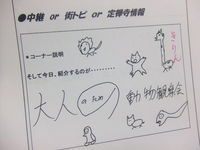 ●中継 or 街トピ or 定禅寺情報
★コーナー説明
そして今日、紹介するのが・・・・・・・・・
大人のための動物観察会
きりん